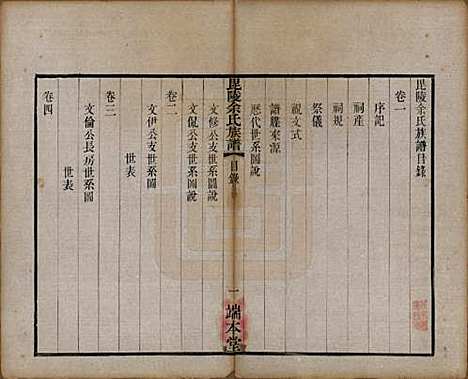 毘陵余氏族譜目錄
卷一
序記
祠產
祠規
祭儀
祝文式
譜牒來源
歷代世系圖說
毘陵余氏族譜
目錄
一
端本堂
文修公支世系圖說
文侃公支世系圖說
卷二
文伊公支世系圖
世表
卷三
文倫公長房世系圖
世表
卷四